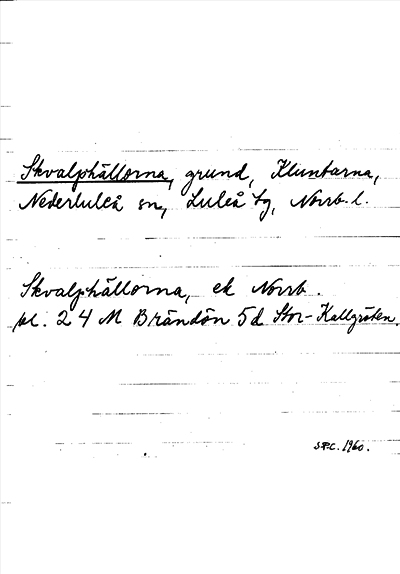 Skvalphällorna, grund, Kluntarna,
Nederluleå sn, Luleå tg, Norrb. l.
Skvalphällorna, ek Norrb.
pl. 24 M Brändön 5d Stor-Kallgrötan.
S.F.C. 1960.